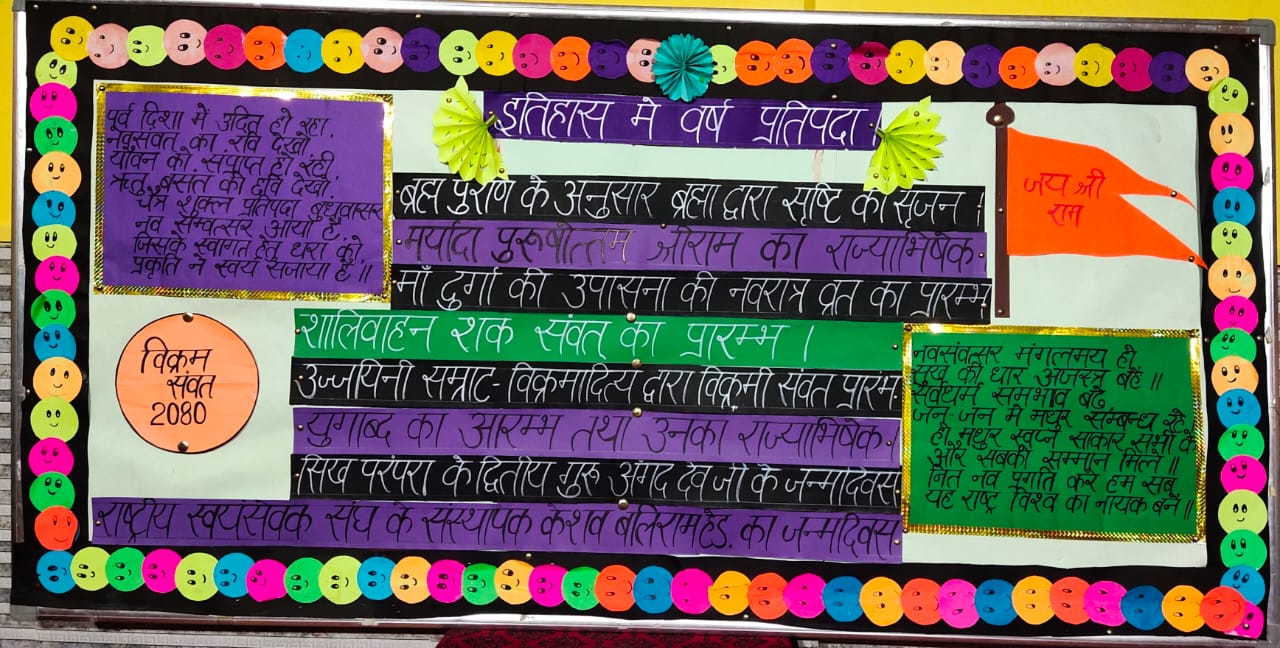 इतिहास मे वर्ष प्रतिपदा
पूर्व दिशा में उदित हो रहा
नवसंवत का रवि देखो
यौवन को सप्राप्त हो रही
ऋतु बसंत की छवि देखो
चैत्र शुक्ल प्रतिपदा बुधवासर
नव सम्वत्सर आया है
जिसके स्वागत हेतु धरा को
प्रकृति ने स्वयं सजाया है ॥
ब्रह्म पुराण के अनुसार ब्रह्मा द्वारा सृष्टि का सृजन ।
मर्यादा पुरूषोत्तम श्रीराम का राज्याभिषेक
माँ दुर्गा की उपासना की नवरात्र व्रत का प्रारम्भ
शालिवाहन शक संवत का प्रारम्भ ।
उज्जयिनी सम्राट- विक्रमादित्य द्वारा विक्रमी संवत प्रारम्भ
युगाब्द का आरम्भ तथा उनका राज्याभिषेक
सिख परंपरा के द्वितीय गुरू अंगद देव जी के जन्मदिवस
राष्ट्रीय स्वयंसेवक संघ के संस्थापक केशव बलिराम हेड. का जन्मदिवस
जय श्री
राम
विक्रम
संवत
2080
नवसंवत्सर मंगलमय हो
सुख की धार अजस्त्र बहे ॥
सर्वधर्म समभाव बढ़े
जन-जन में मधुर सम्बन्ध रहे
हो मधुर स्वप्न साकार सभी के
और सबको सम्मान मिले ॥
नित नव प्रगति करें हम सब
यह राष्ट्र विश्व का नायक बने ॥